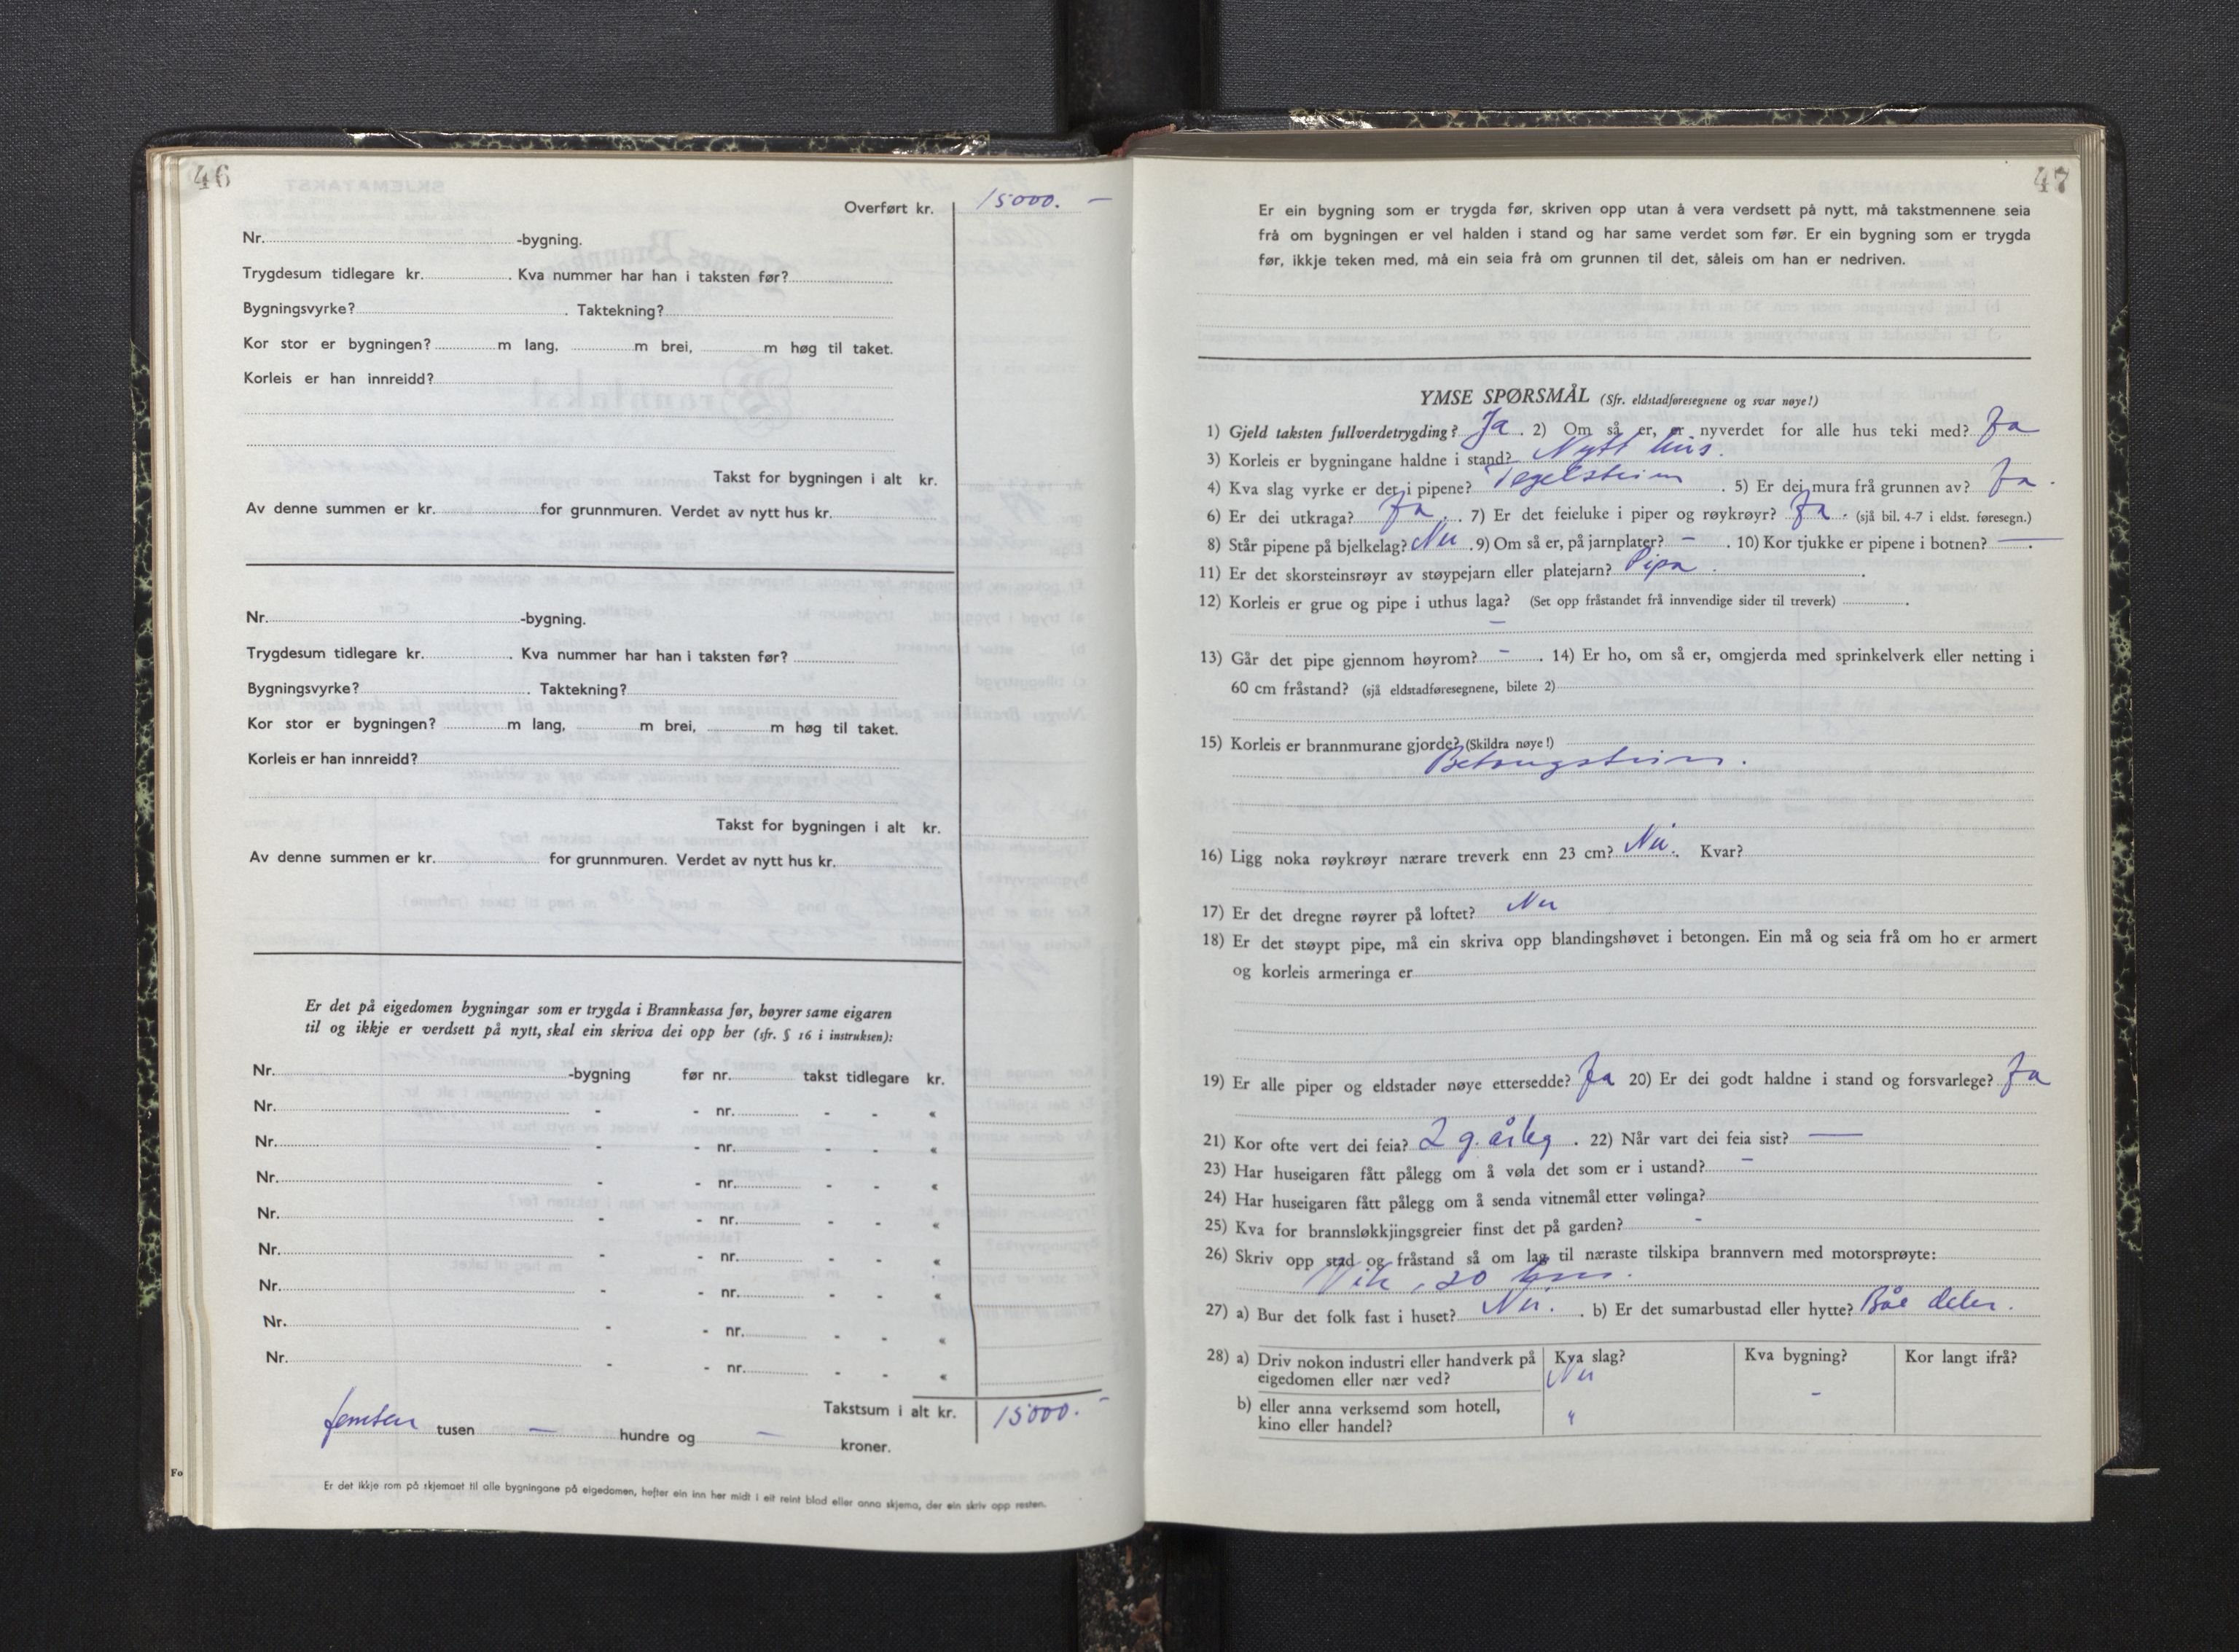 46
Overført kr. 15000.-
Nr. -bygning.
Trygdesum tidlegare kr. . Kva nummer har han i taksten før?
Bygningsvyrke? . Taktekning?
Kor stor er bygningen? m lang, m brei, m høg til taket.
Korleis er han innreidd?
Takst for bygningen i alt kr.
Av denne summen er kr. for grunnmuren. Verdet av nytt hus kr.
Nr. -bygning.
Trygdesum tidlegare kr. . Kva nummer har han i taksten før?
Bygningsvyrke? . Taktekning?
Kor stor er bygningen? m lang, m brei, m høg til taket.
Korleis er han innreidd?
Takst for bygningen i alt kr.
Av denne summen er kr. for grunnmuren. Verdet av nytt hus kr.
Er det på eigedomen bygningar som er trygda i Brannkassa før, høyrer same eigaren
til og ikkje er verdsett på nytt, skal ein skriva dei opp her (sfr. § 16 i instruksen):
Nr. -bygning før nr. takst tidlegare kr.
Nr. - - nr. - - «
Nr. - - nr. - - «
Nr. - - nr. - - «
Nr. - - nr. - - «
Nr. - - nr. - - «
Nr. - - nr. - - «
Nr. - - nr. - - «
Nr. - - nr. - - «
Takstsum i alt kr. 15000.-
femten tusen - hundre og - kroner.
Fo
Er det ikkje rom på skjemaet til alle bygningane på eigedomen, hefter ein inn her midt i eit reint blad eller anna skjema, der ein skriv opp resten.
47
Er ein bygning som er trygda før, skriven opp utan å vera verdsett på nytt, må takstmennene seia
frå om bygningen er vel halden i stand og har same verdet som før. Er ein bygning som er trygda
før, ikkje teken med, må ein seia frå om grunnen til det, såleis om han er nedriven.
YMSE SPØRSMÅL (Sfr. eldstadføresegnene og svar nøye!)
1) Gjeld taksten fullverdetrygding? Ja . 2) Om så er, er nyverdet for alle hus teki med? Ja
3) Korleis er bygningane haldne i stand? Nytt hus.
4) Kva slag vyrke er det i pipene? Tegelstein . 5) Er dei mura frå grunnen av? Ja.
6) Er dei utkraga? Ja . 7) Er det feieluke i piper og røykrøyr? Ja . (sjå bil. 4-7 i eldst. føresegn.)
8) Står pipene på bjelkelag? Nei . 9) Om så er, på jarnplater? - . 10) Kor tjukke er pipene i botnen? - .
11) Er det skorsteinsrøyr av støypejarn eller platejarn? Pipa .
12) Korleis er grue og pipe i uthus laga? (Set opp fråstandet frå innvendige sider til treverk) .
-
13) Går det pipe gjennom høyrom? - . 14) Er ho, om så er, omgjerda med sprinkelverk eller netting i
60 cm fråstand? (sjå eldstadføresegnene, bilete 2)
15) Korleis er brannmurane gjorde? (Skildra nøye!)
Betongstein.
16) Ligg noka røykrøyr nærare treverk enn 23 cm? Nei. Kvar?
17) Er det dregne røyrer på loftet? Nei
18) Er det støypt pipe, må ein skriva opp blandingshøvet i betongen. Ein må og seia frå om ho er armert
og korleis armeringa er
19) Er alle piper og eldstader nøye ettersedde? Ja 20) Er dei godt haldne i stand og forsvarlege? Ja
21) Kor ofte vert dei feia? 2 g. årleg . 22) Når vart dei feia sist? -
23) Har huseigaren fått pålegg om å vøla det som er i ustand? -
24) Har huseigaren fått pålegg om å senda vitnemål etter vølinga?
25) Kva for brannsløkkjingsgreier finst det på garden? -
26) Skriv opp stad og fråstand så om lag til næraste tilskipa brannvern med motorsprøyte:
Vik, 20 km.
27) a) Bur det folk fast i huset? Nei. . b) Er det sumarbustad eller hytte? Båe deler.
28) a) Driv nokon industri eller handverk på Kva slag? Kva bygning? Kor langt ifrå?
eigedomen eller nær ved? Nei -
b) eller anna verksemd som hotell,
kino eller handel? "